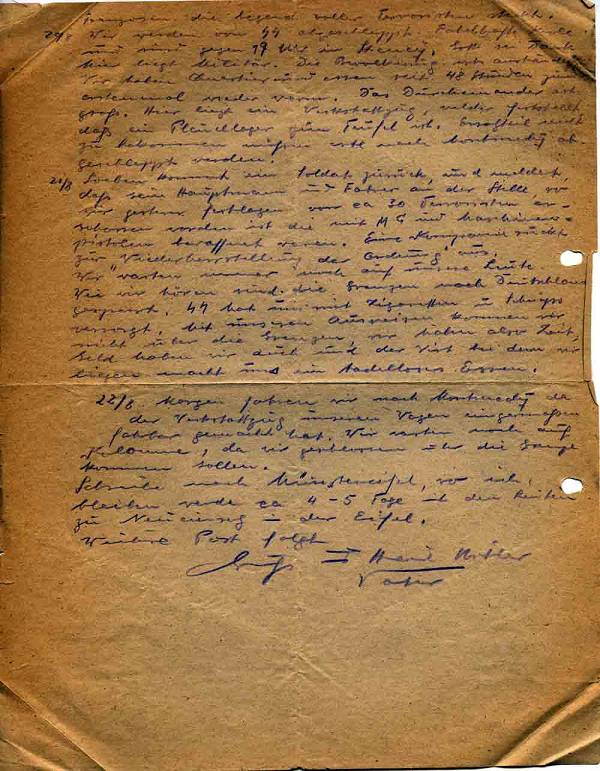 die Gegend voller Terroristen steckt.
20/8 Wir werden von SS abgeschleppt. Fabelhafte Kerle
und sind gegen 19 Uhr in Stenay. Gott sei Dank
hier liegt Militär. Die Bevölkerung ist anständig
Wir haben Quartier und essen seit 48 Stunden zum
erstenmal wieder warm. Das Durcheinander ist
groß. Hier liegt ein Werkstattzug, welcher feststellt
daß ein Pleuellager zum Teufel ist. Ersatzteil nicht
zu bekommen müssen erst nach Montmedy ab-
geschleppt werden.
21/8 Soeben kommt ein Soldat zurück, und meldet,
daß sein Hauptmann und Fahrer an der Stelle, wo
wir gestern festlagen von ca 30 Terroristen er-
schossen worden ist die mit MG und Maschinen-
pistolen bewaffnet waren. Eine Kompanie rückt
zur Wiederherstellung der Ordnung aus.
Wir warten immer noch auf unsere Leute
Wie wir hören sind die Grenzen nach Deutschland
gesperrt. SS hat uns mit Zigaretten u Schnaps
versorgt, mit unseren Ausweisen kommen wir
nicht über die Grenzen, wir haben also Zeit,
Geld haben wir auch und der Wirt bei dem wir
liegen macht uns ein tadelloses Essen.
22/8 Morgen fahren wir nach Montmedy da
der Werkstattzug unseren Wagen einigermaßen
fahrbar gemacht hat. Wir warten noch auf
Kolonne, da wir geschlossen über die Grenze
kommen sollen.
Schreibe nach Münstereifel, wo ich
bleiben werde ca 4-5 Tage mit den
zu in der Eifel.
Weitere Post folgt
Gruß
Vater